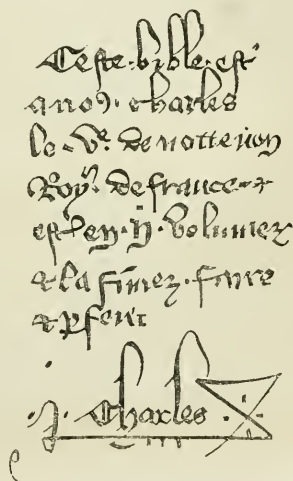 Ceste . bible . est
a noꝰ . charles
le . Ve . de notre non
Roy . de france . ⁊
est . en . ij . volumez
⁊ la fimez . faire
⁊ ꝑfeire
Charles